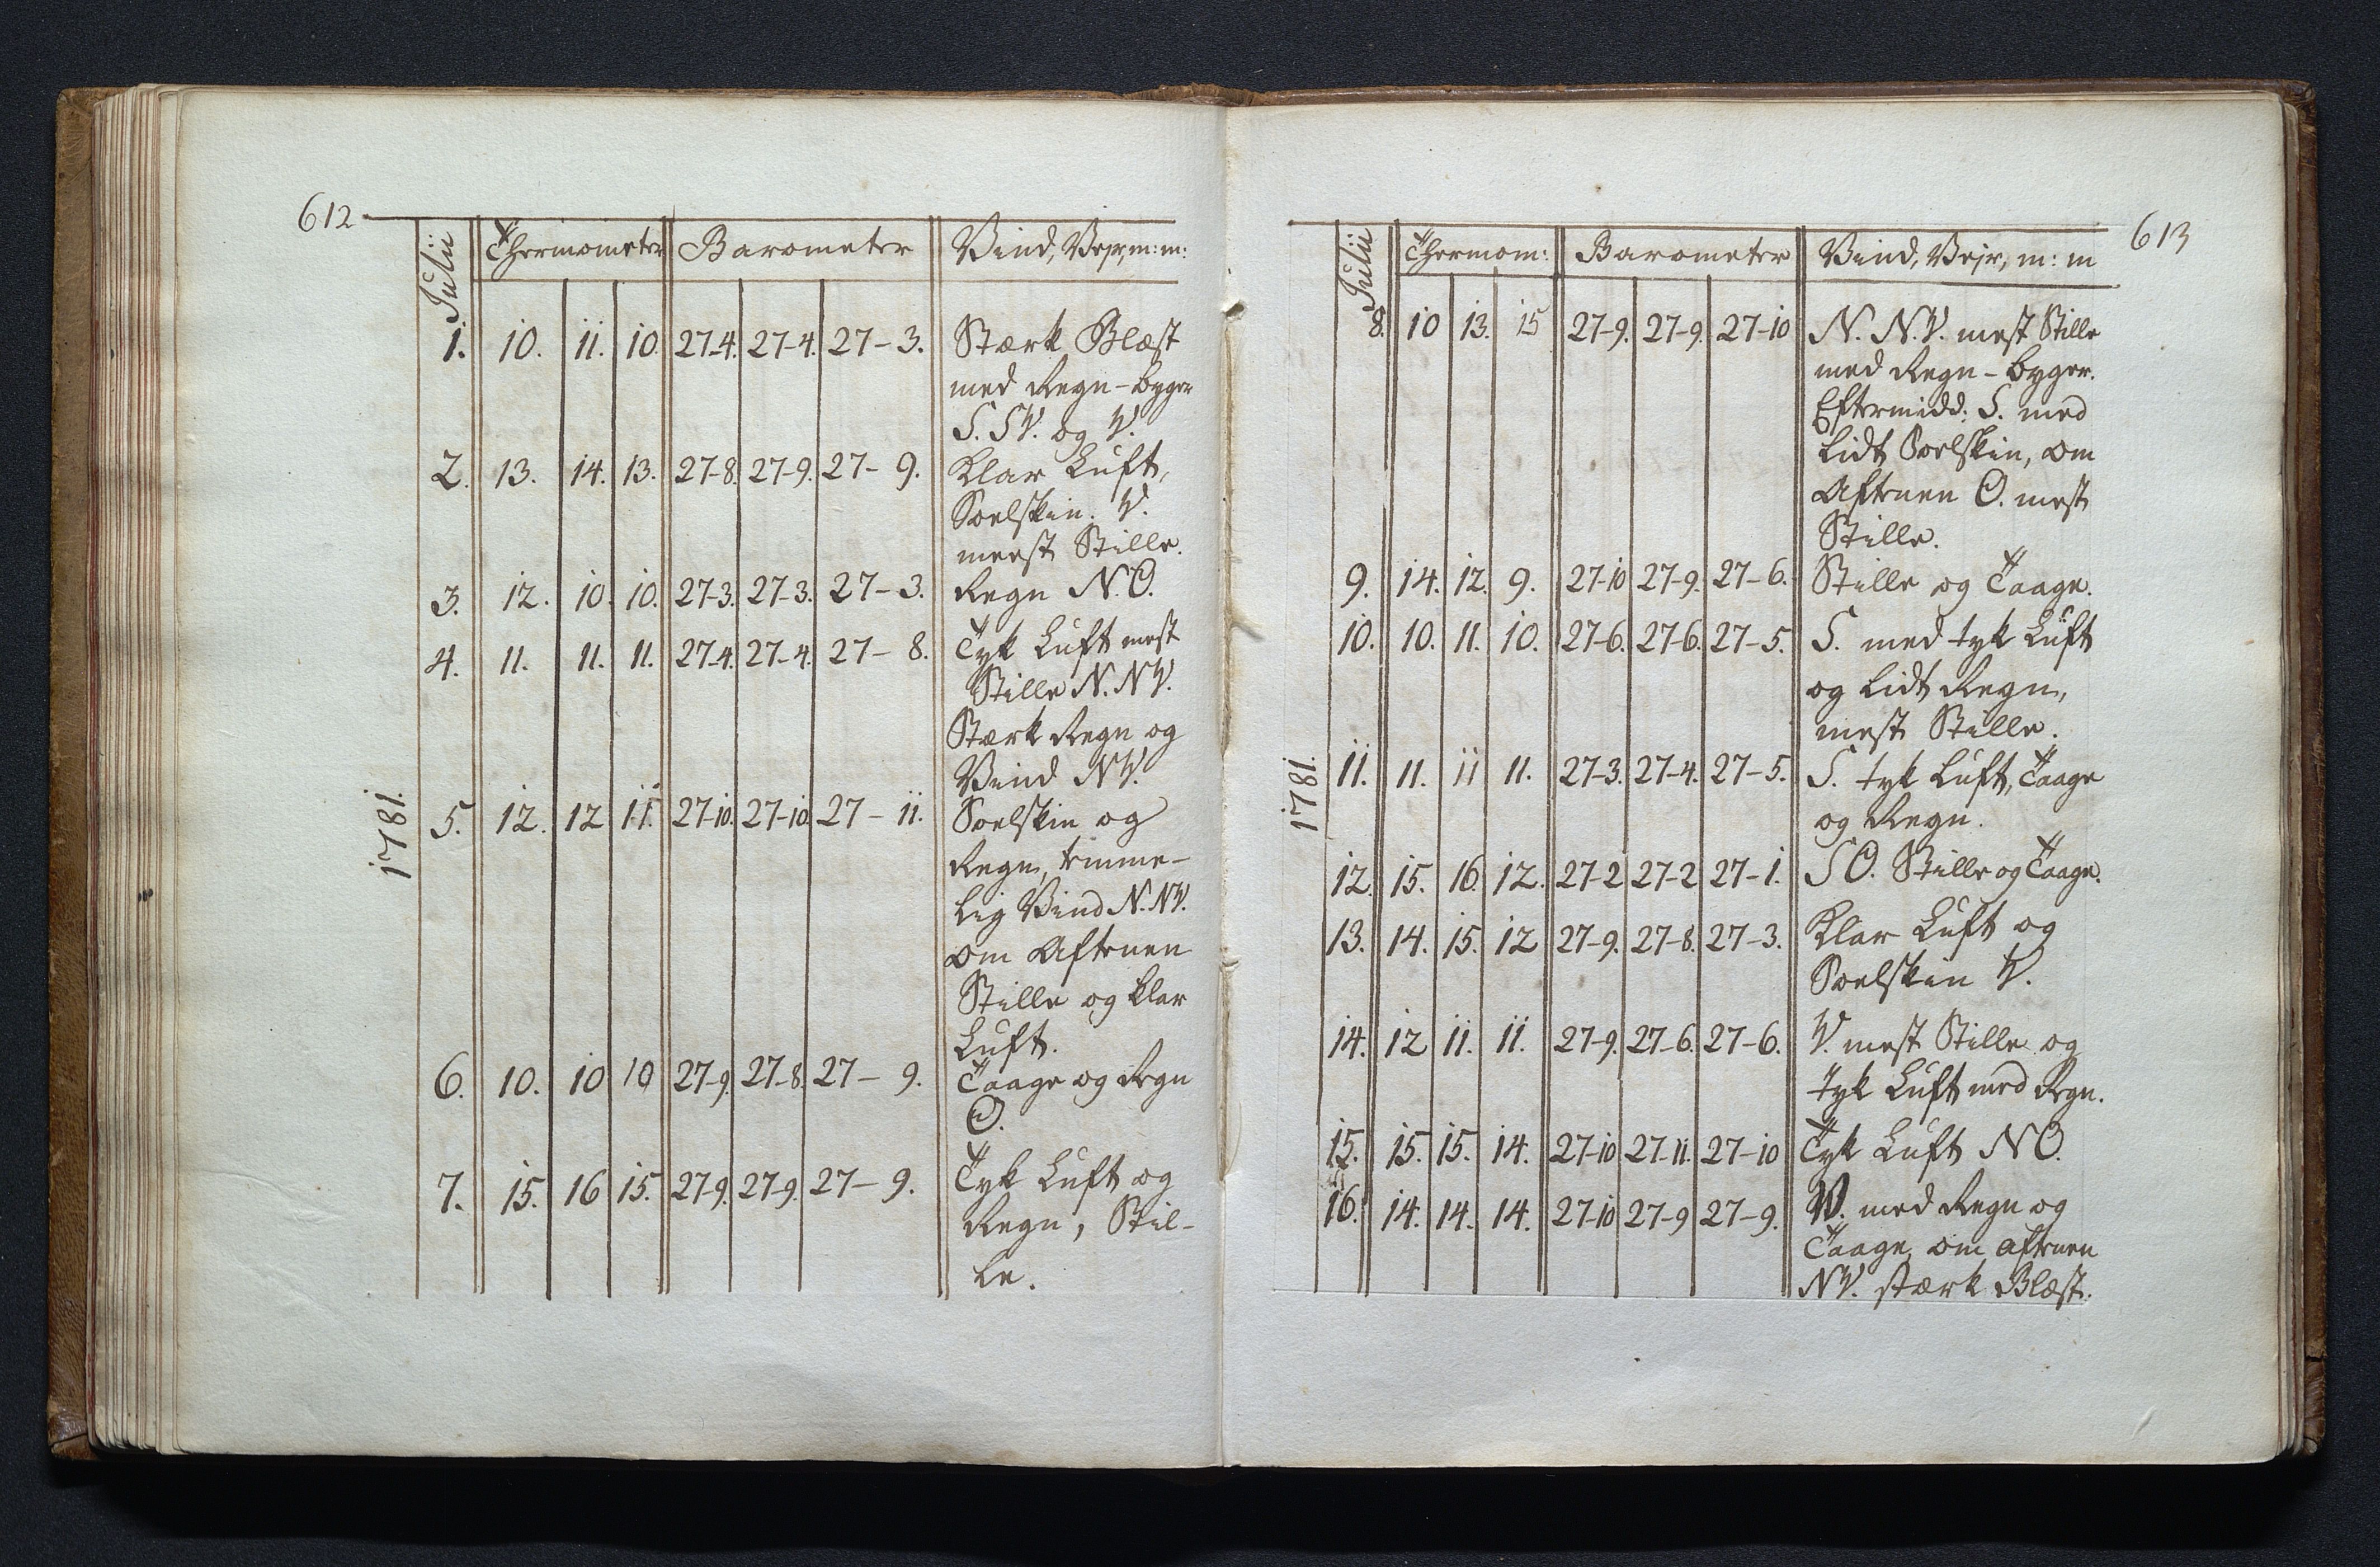 612
Julii Thermometer Barometer Vind, Vejr, m: m:
1. 10. 11. 10. 27-4. 27-4. 27-3. Stærk Blæst
med Regn-byger
S. SV. og V.
2. 13. 14. 13. 27-8. 27-9. 27-9. Klar Luft,
Soelskin. V.
meest Stille.
3. 12. 10. 10. 27-3. 27-3. 27-3. Regn N.O.
4. 11. 11. 11. 27-4. 27-4. 27-8. Tyk Luft mest
Stille N. NV.
Stærk Regn og
Vind NV.
1781.
5. 12. 12 11. 27-10. 27-10 27-11. Soelskin og
Regn, temme-
lig Vind N. NV.
om Aftenen
Stille og klar
Luft.
6. 10. 10 10 27-9. 27-8. 27-9. Taage og Regn
O.
7. 15. 16 15. 27-9. 27-9. 27-9. Tyk Luft og
Regn, Stil-
le.
613
Julii Thermom: Barometer Vind, Vejr, m: m
8. 10 13. 15 27-9. 27-9. 27-10 N. N.V. mest Stille
med Regn-byger.
Eftermidd: S. med
lidt Soelskin, om
Aftenen O. mest
Stille.
9. 14. 12. 9. 27-10 27-9. 27-6. Stille og Taage.
10. 10. 11. 10. 27-6. 27-6. 27-5. S. med tyk Luft
og lidt Regn,
mest Stille.
1781.
11. 11. 11 11. 27-3. 27-4. 27-5. S. tyk Luft, Taage
og Regn.
12. 15. 16. 12. 27-2 27-2 27-1. SO. Stille og Taage.
13. 14. 15. 12 27-9. 27-8. 27-3. Klar Luft og
Soelskin V.
14. 12 11. 11. 27-9. 27-6. 27-6. V. mest Stille og
tyk Luft med Regn.
15. 15. 15. 14. 27-10 27-11. 27-10 Tyk Luft NO.
16. 14. 14. 14. 27-10 27-9 27-9. V. med Regn og
Taage, om aftenen
NV. stærk Blæst.